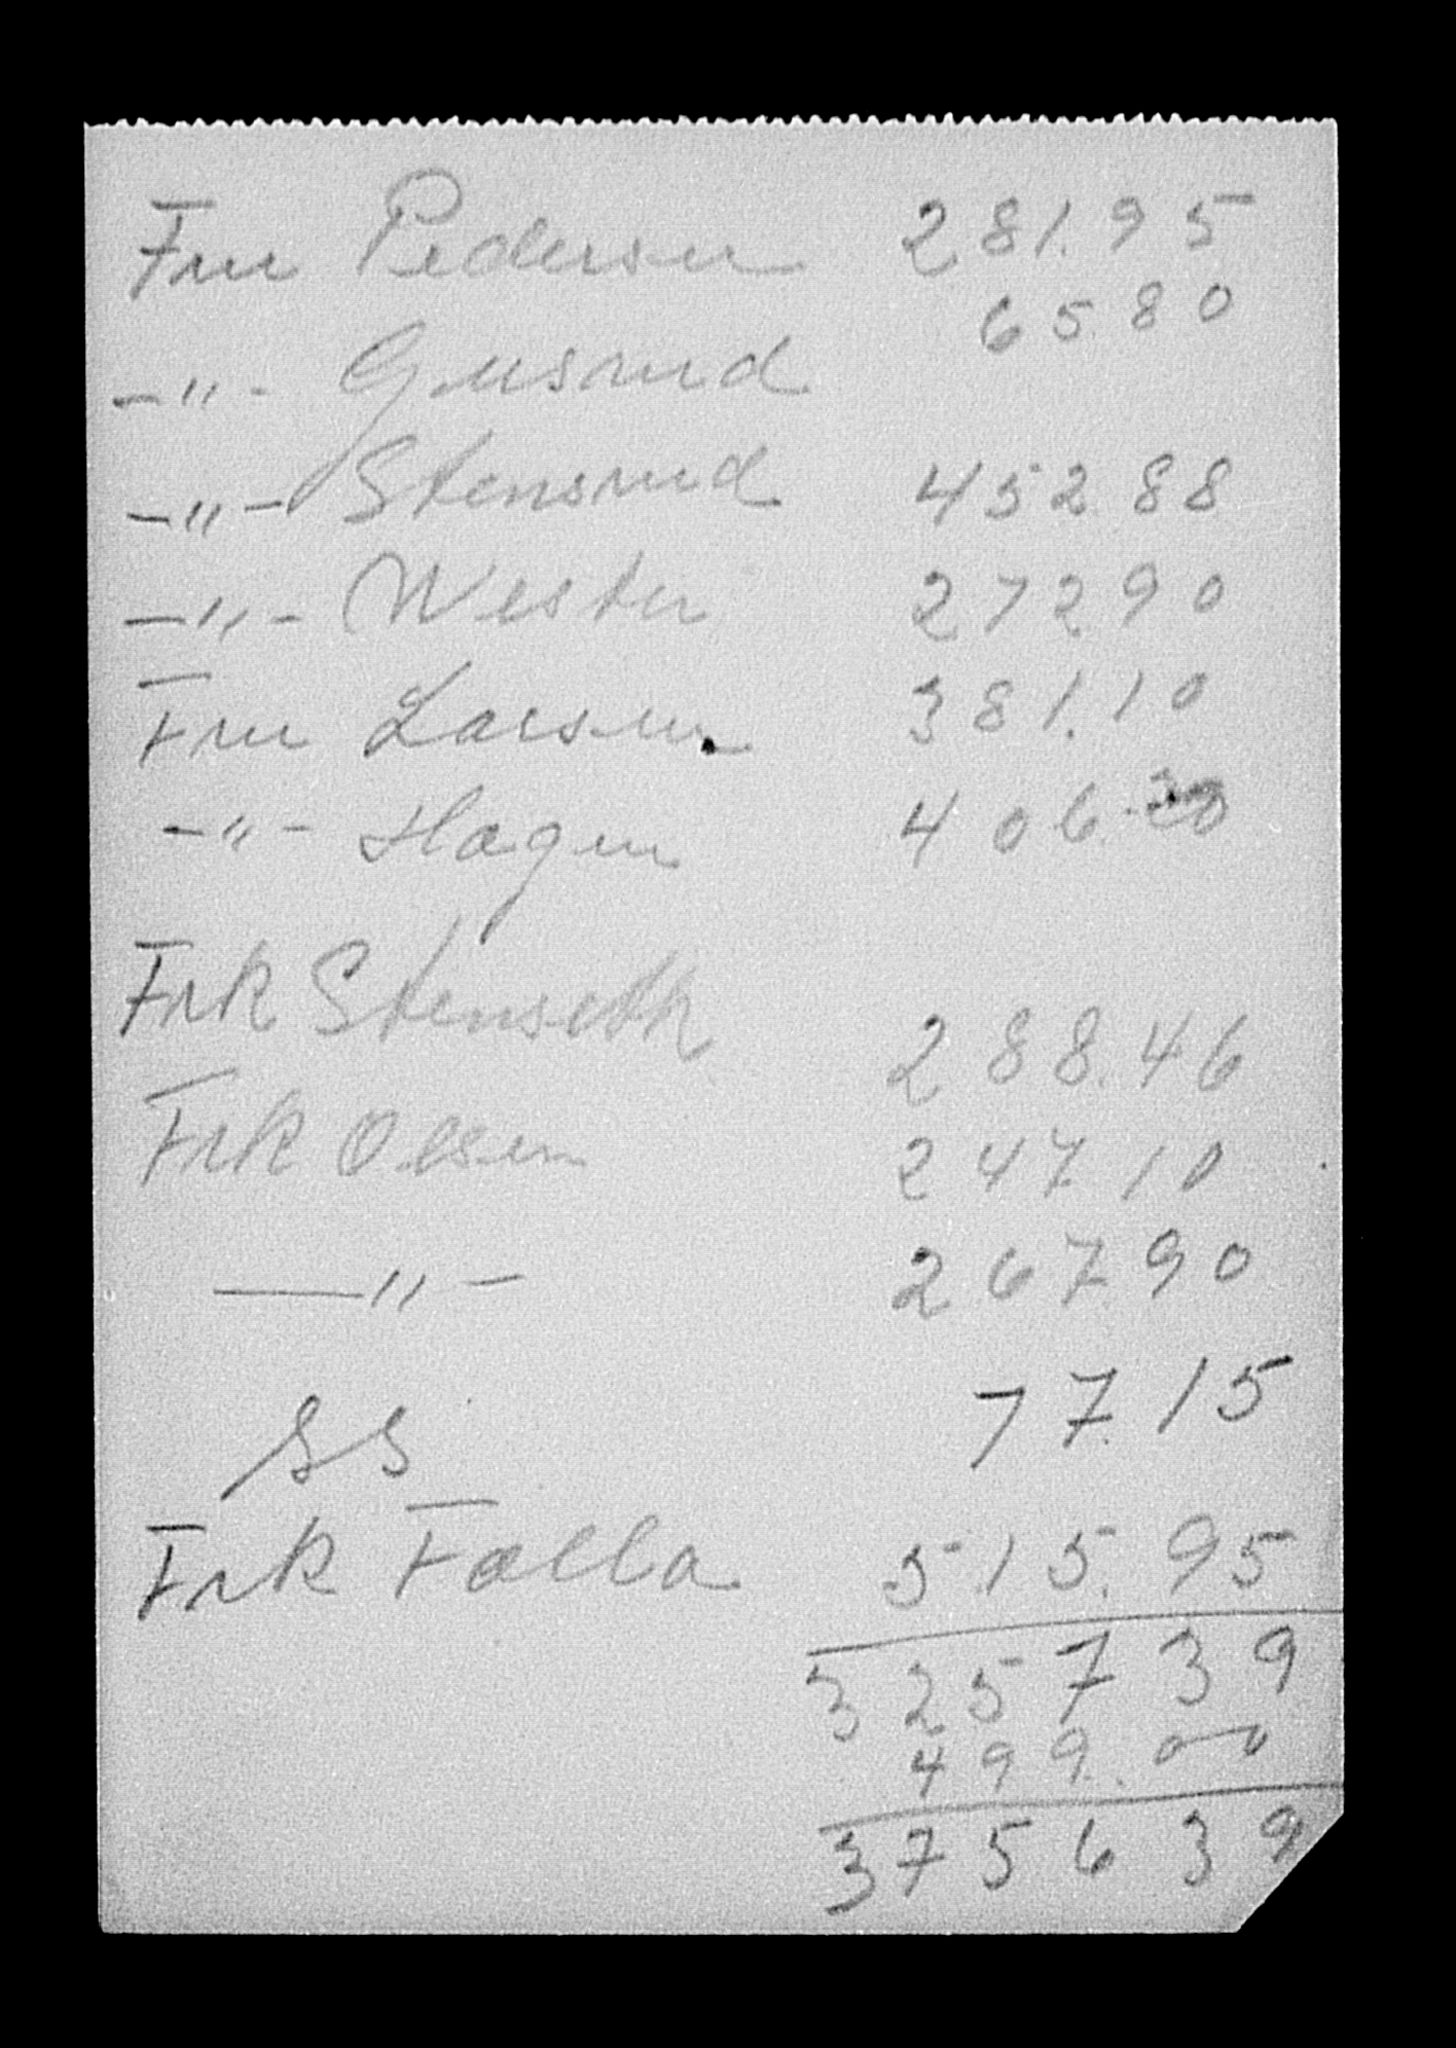 Fru Pedersen 281.95
65.80
-"- Gusrud
-"- Stensrud 452.88
-"- Wester 272.90
Fru Larsen 381.10
-"- Hagen 406.20
Frk Stenseth 288.46
Frk Olsen 247.10
-"- 267.90
SS 77.15
Frk Falla 515.95
325739
499.00
375639